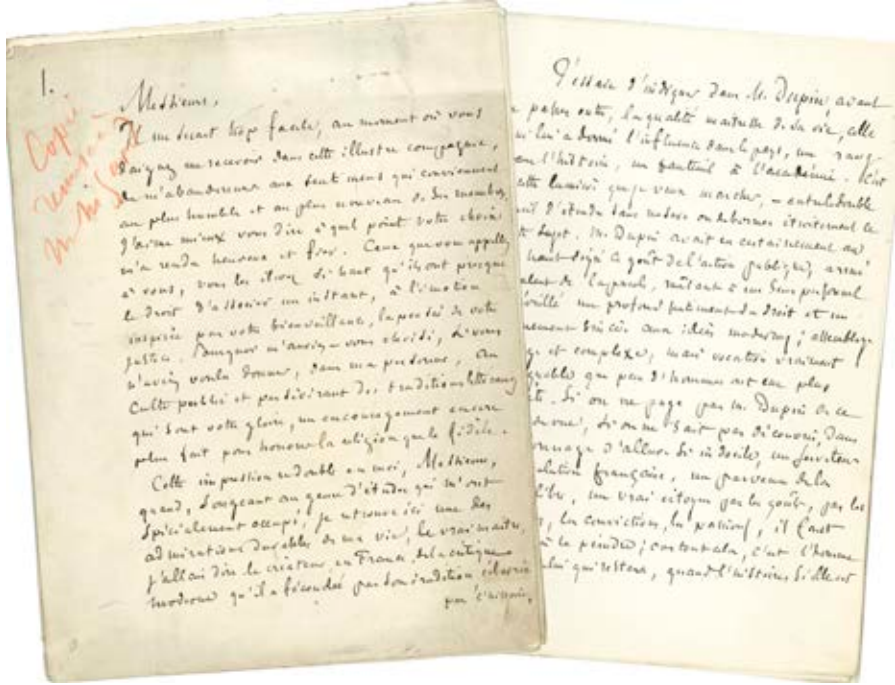 1.
Copie
remise à
Messieurs,
Il me serait trop facile, au moment où vous
daignez me recevoir dans cette illustre compagnie,
de m'abandonner aux sentiments qui conviennent
au plus humble et au plus nouveau de ses membres,
J'aime mieux vous dire à quel point votre choix
m'a rendu heureux et fier. Ceux que vous appelez
à vous, vous les élevez si haut qu'ils ont presque
le droit d'associer un instant, à l'émotion
inspirée par votre bienveillance, la pensée de votre
justice. Pourquoi m'auriez-vous choisi, si vous
n'aviez voulu donner, dans ma personne, au
culte public et persévérant des traditions littéraires
qui sont votre gloire, un encouragement encore
plus fait pour honorer la religion que le fidèle.
Cette impression redouble en moi, Messieurs,
quand, songeant au genre d'études qui m'ont
spécialement occupé, je retrouve ici une des
admirations durables de ma vie, le vrai maître,
j'allais dire le créateur, en France, de la critique
moderne qu'il a fécondée par son érudition éclairée
par l'histoire,
J'essaie d'indiquer dans M. Dupin, avant
passer outre, la qualité maîtresse de sa vie, celle
qui lui a donné l'influence dans le pays, un rang
dans l'histoire, un fauteuil à l'académie. C'est
cette lumière que je veux marcher, entre le double
d'étendre sans mesure ou de borner étroitement ce
sujet. M. Dupin avait eu certainement au
haut degré le goût de l'action publique, armé
talent de la parole, mêlant à un sens personnel
un profond sentiment du droit et un
aux idées modernes ; assemblage
et complexe, mais vocation vraiment
que peu d'hommes ont eu plus
Si on ne juge pas M. Dupin de ce
vue, si on ne sait pas découvrir, dans
personnage d'allure si indocile, un serviteur
révolution française, un parvenu de la
libre, un vrai citoyen par les goûts, par les
les convictions, les passions, il faut
à le peindre ; car tout cela, c'est l'homme
celui qui restera, quand l'histoire, si elle est